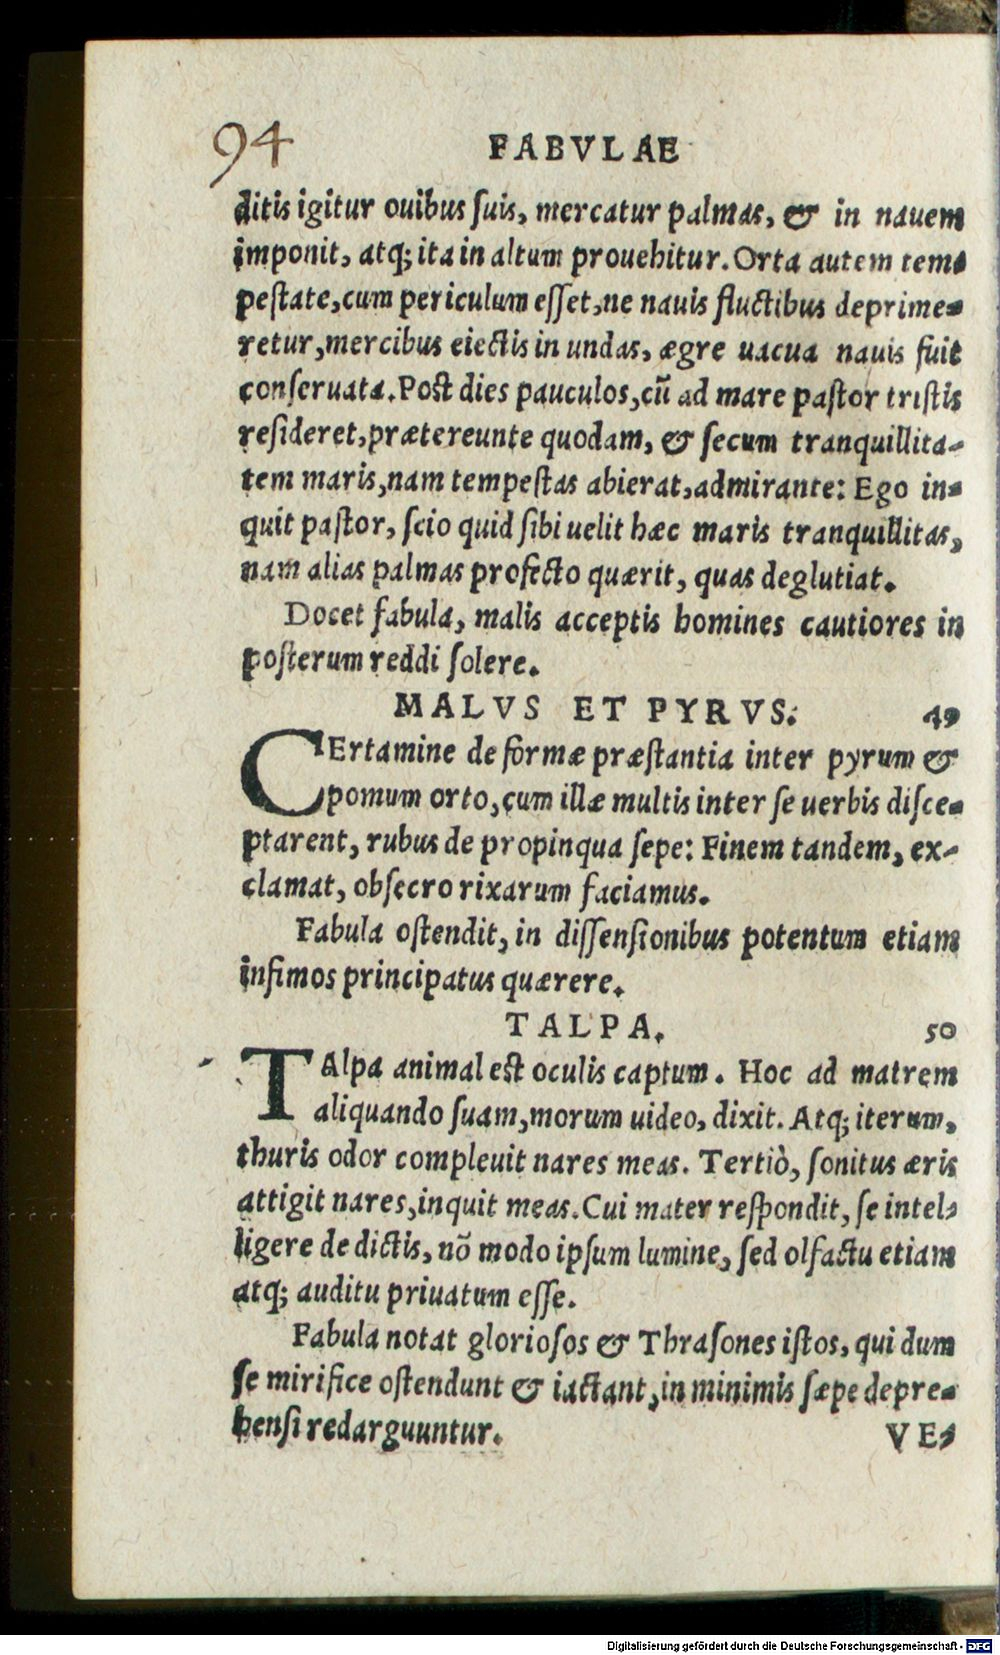 94 FABVLAE
ditis igitur ouibus ſuis, mercatur palmas, & in nauem
imponit, atq; ita in altum prouehitur. Orta autem tem-
peſtate, cum periculum eſſet, ne nauis fluctibus deprime-
retur, mercibus eiectis in undas, ægre uacua nauis fuit
conſeruata. Poſt dies pauculos, cū ad mare paſtor triſtis
reſideret, prætereunte quodam, & ſecum tranquillita-
tem maris, nam tempeſtas abierat, admirante: Ego in-
quit paſtor, ſcio quid ſibi uelit hæc maris tranquillitas,
nam alias palmas profecto quærit, quas deglutiat.
Docet fabula, malis acceptis homines cautiores in
poſterum reddi ſolere.
MALVS ET PYRVS. 49
CErtamine de formæ præſtantia inter pyrum &
pomum orto, cum illæ multis inter ſe uerbis diſce-
ptarent, rubus de propinqua ſepe: Finem tandem, ex-
clamat, obſecro rixarum faciamus.
Fabula oſtendit, in diſſenſionibus potentum etiam
infimos principatus quærere.
TALPA. 50
TAlpa animal eſt oculis captum. Hoc ad matrem
aliquando ſuam, morum uideo, dixit. Atq; iterum,
thuris odor compleuit nares meas. Tertiò, ſonitus æris
attigit nares, inquit meas. Cui mater reſpondit, ſe intel-
ligere de dictis, nō modo ipſum lumine, ſed olfactu etiam
atq; auditu priuatum eſſe.
Fabula notat glorioſos & Thraſones iſtos, qui dum
ſe mirifice oſtendunt & iactant, in minimis ſæpe depre-
henſi redarguuntur. VE-
Digitalisierung gefördert durch die Deutsche Forschungsgemeinschaft - DFG